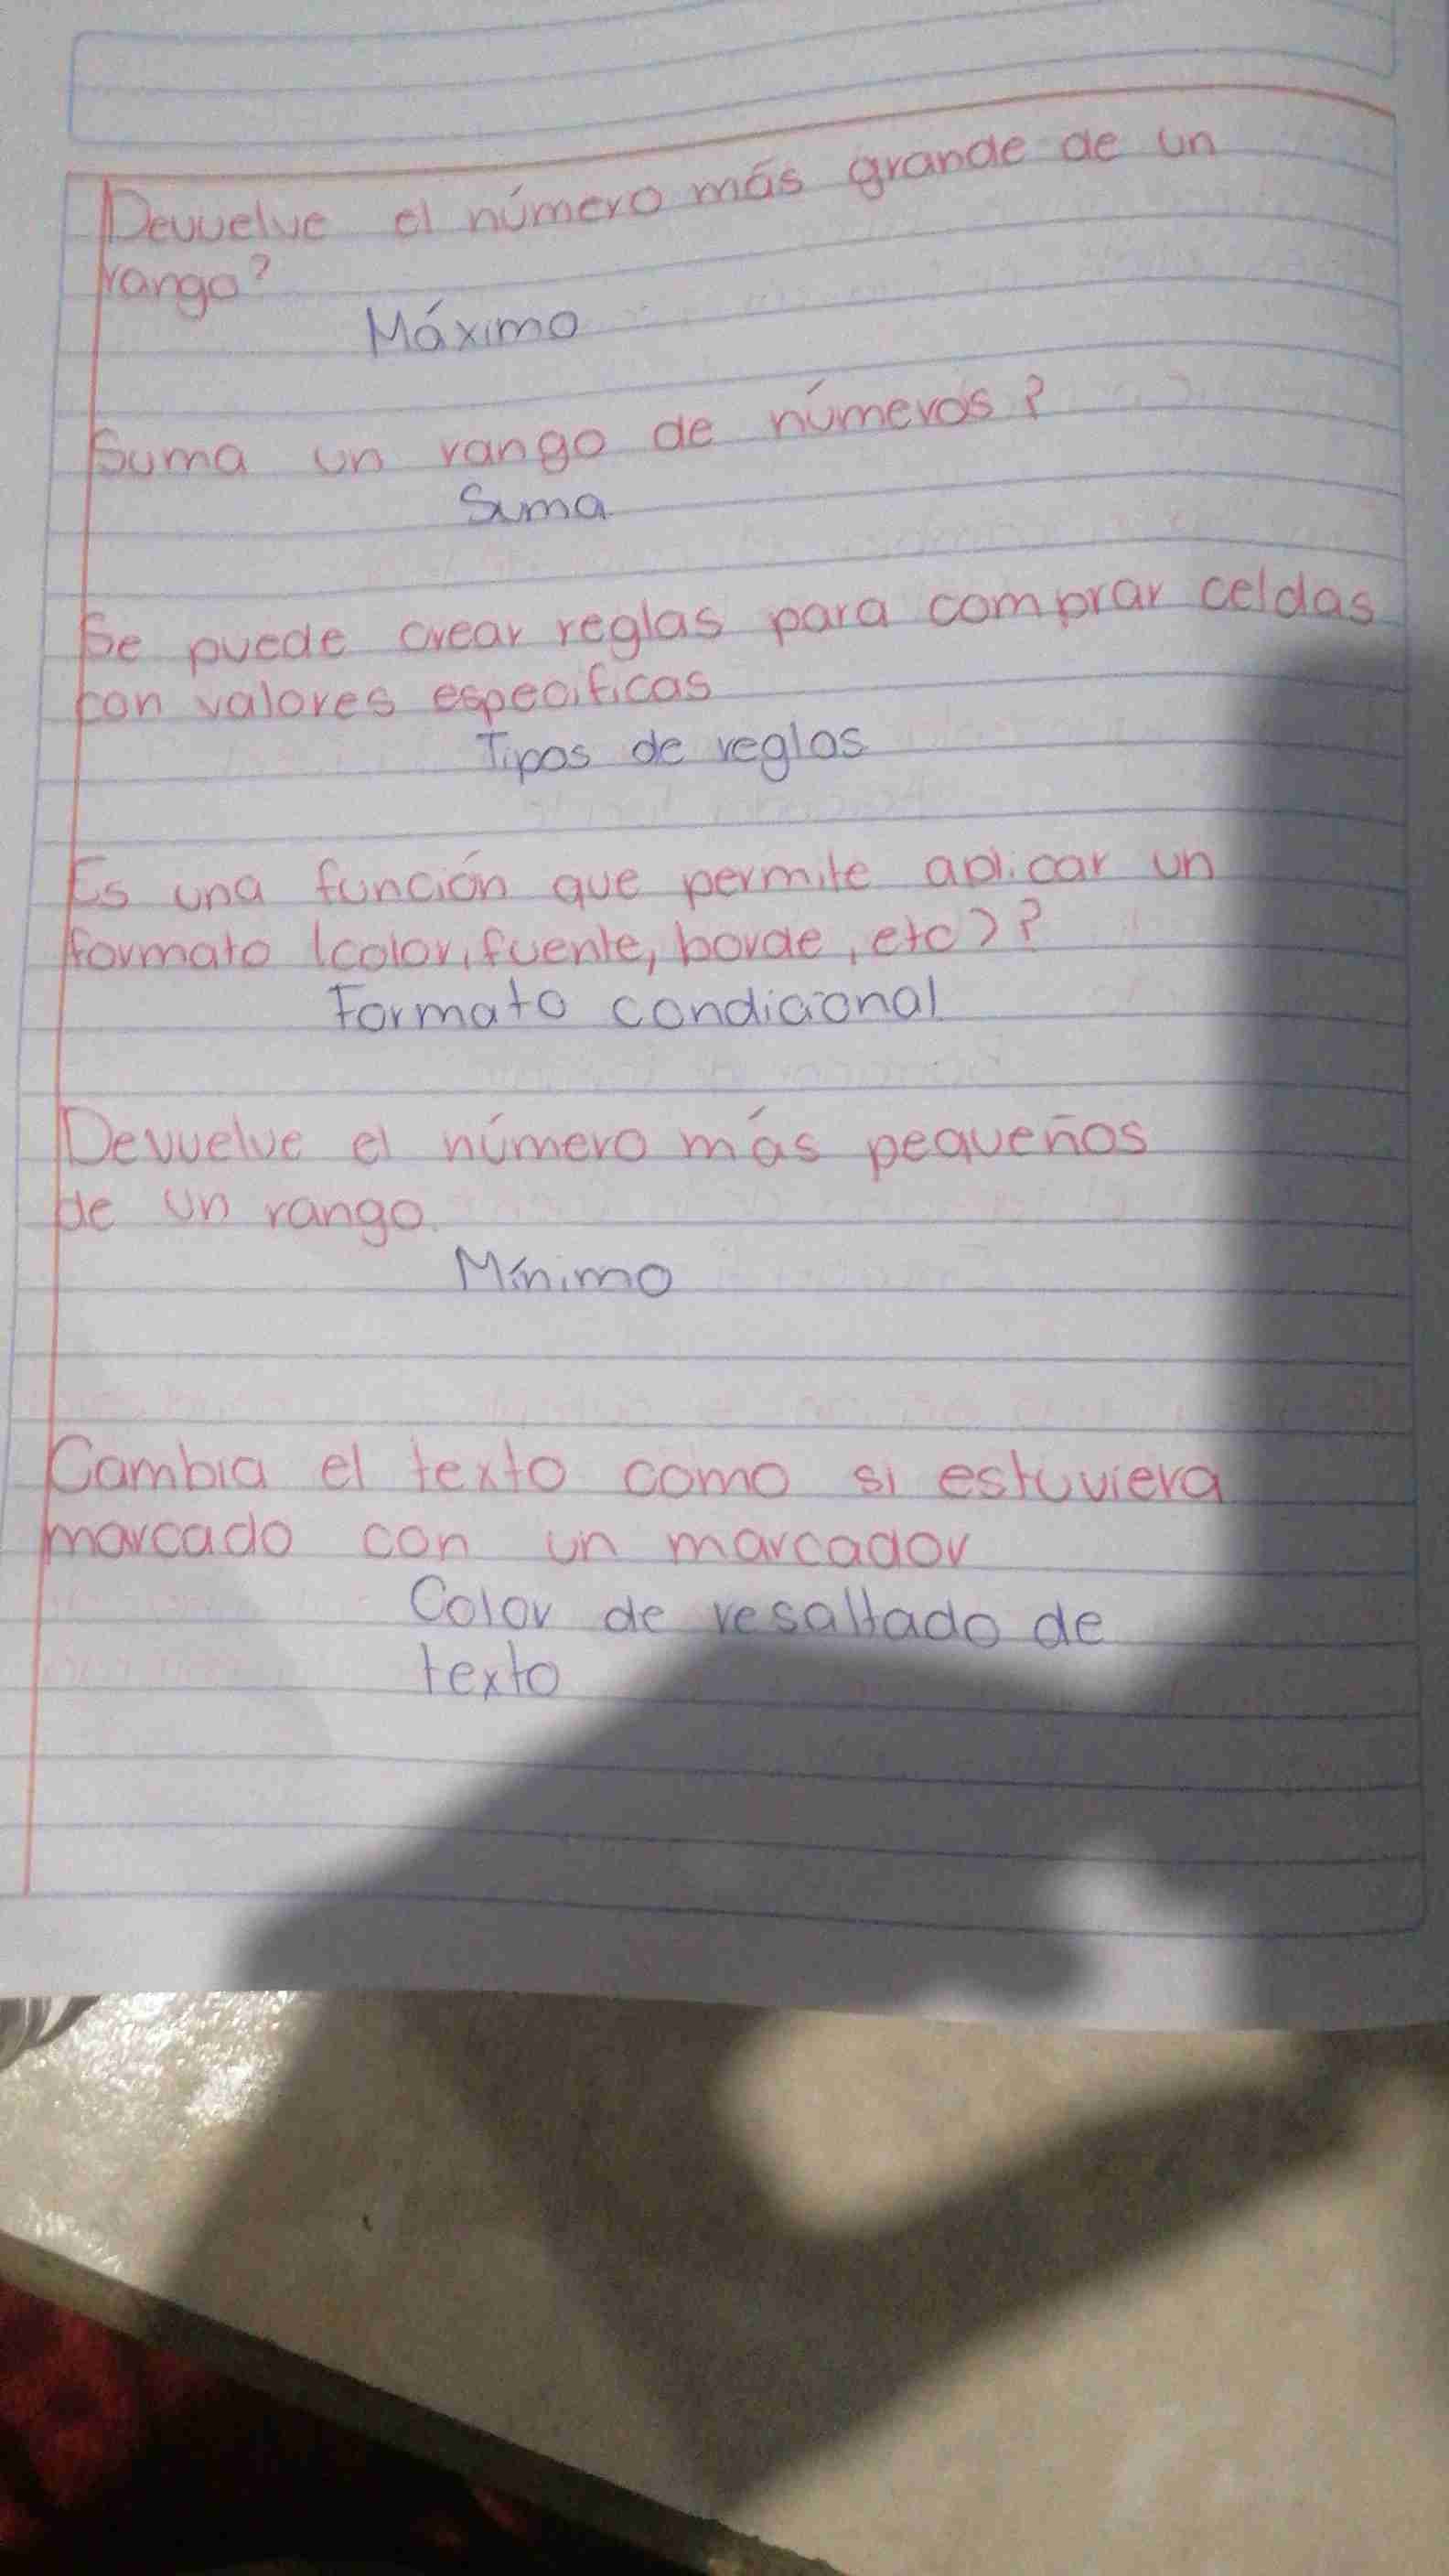 Devuelve el número más grande de un
rango?
Máximo
Suma un rango de números?
Suma
Se puede crear reglas para comprar celdas
con valores especificas
Tipos de reglas
Es una función que permite aplicar un
formato (color, fuente, borde, etc)?
Formato condicional
Devuelve el número más pequeños
de un rango.
Mínimo
Cambia el texto como si estuviera
marcado con un marcador
Color de resaltado de
texto